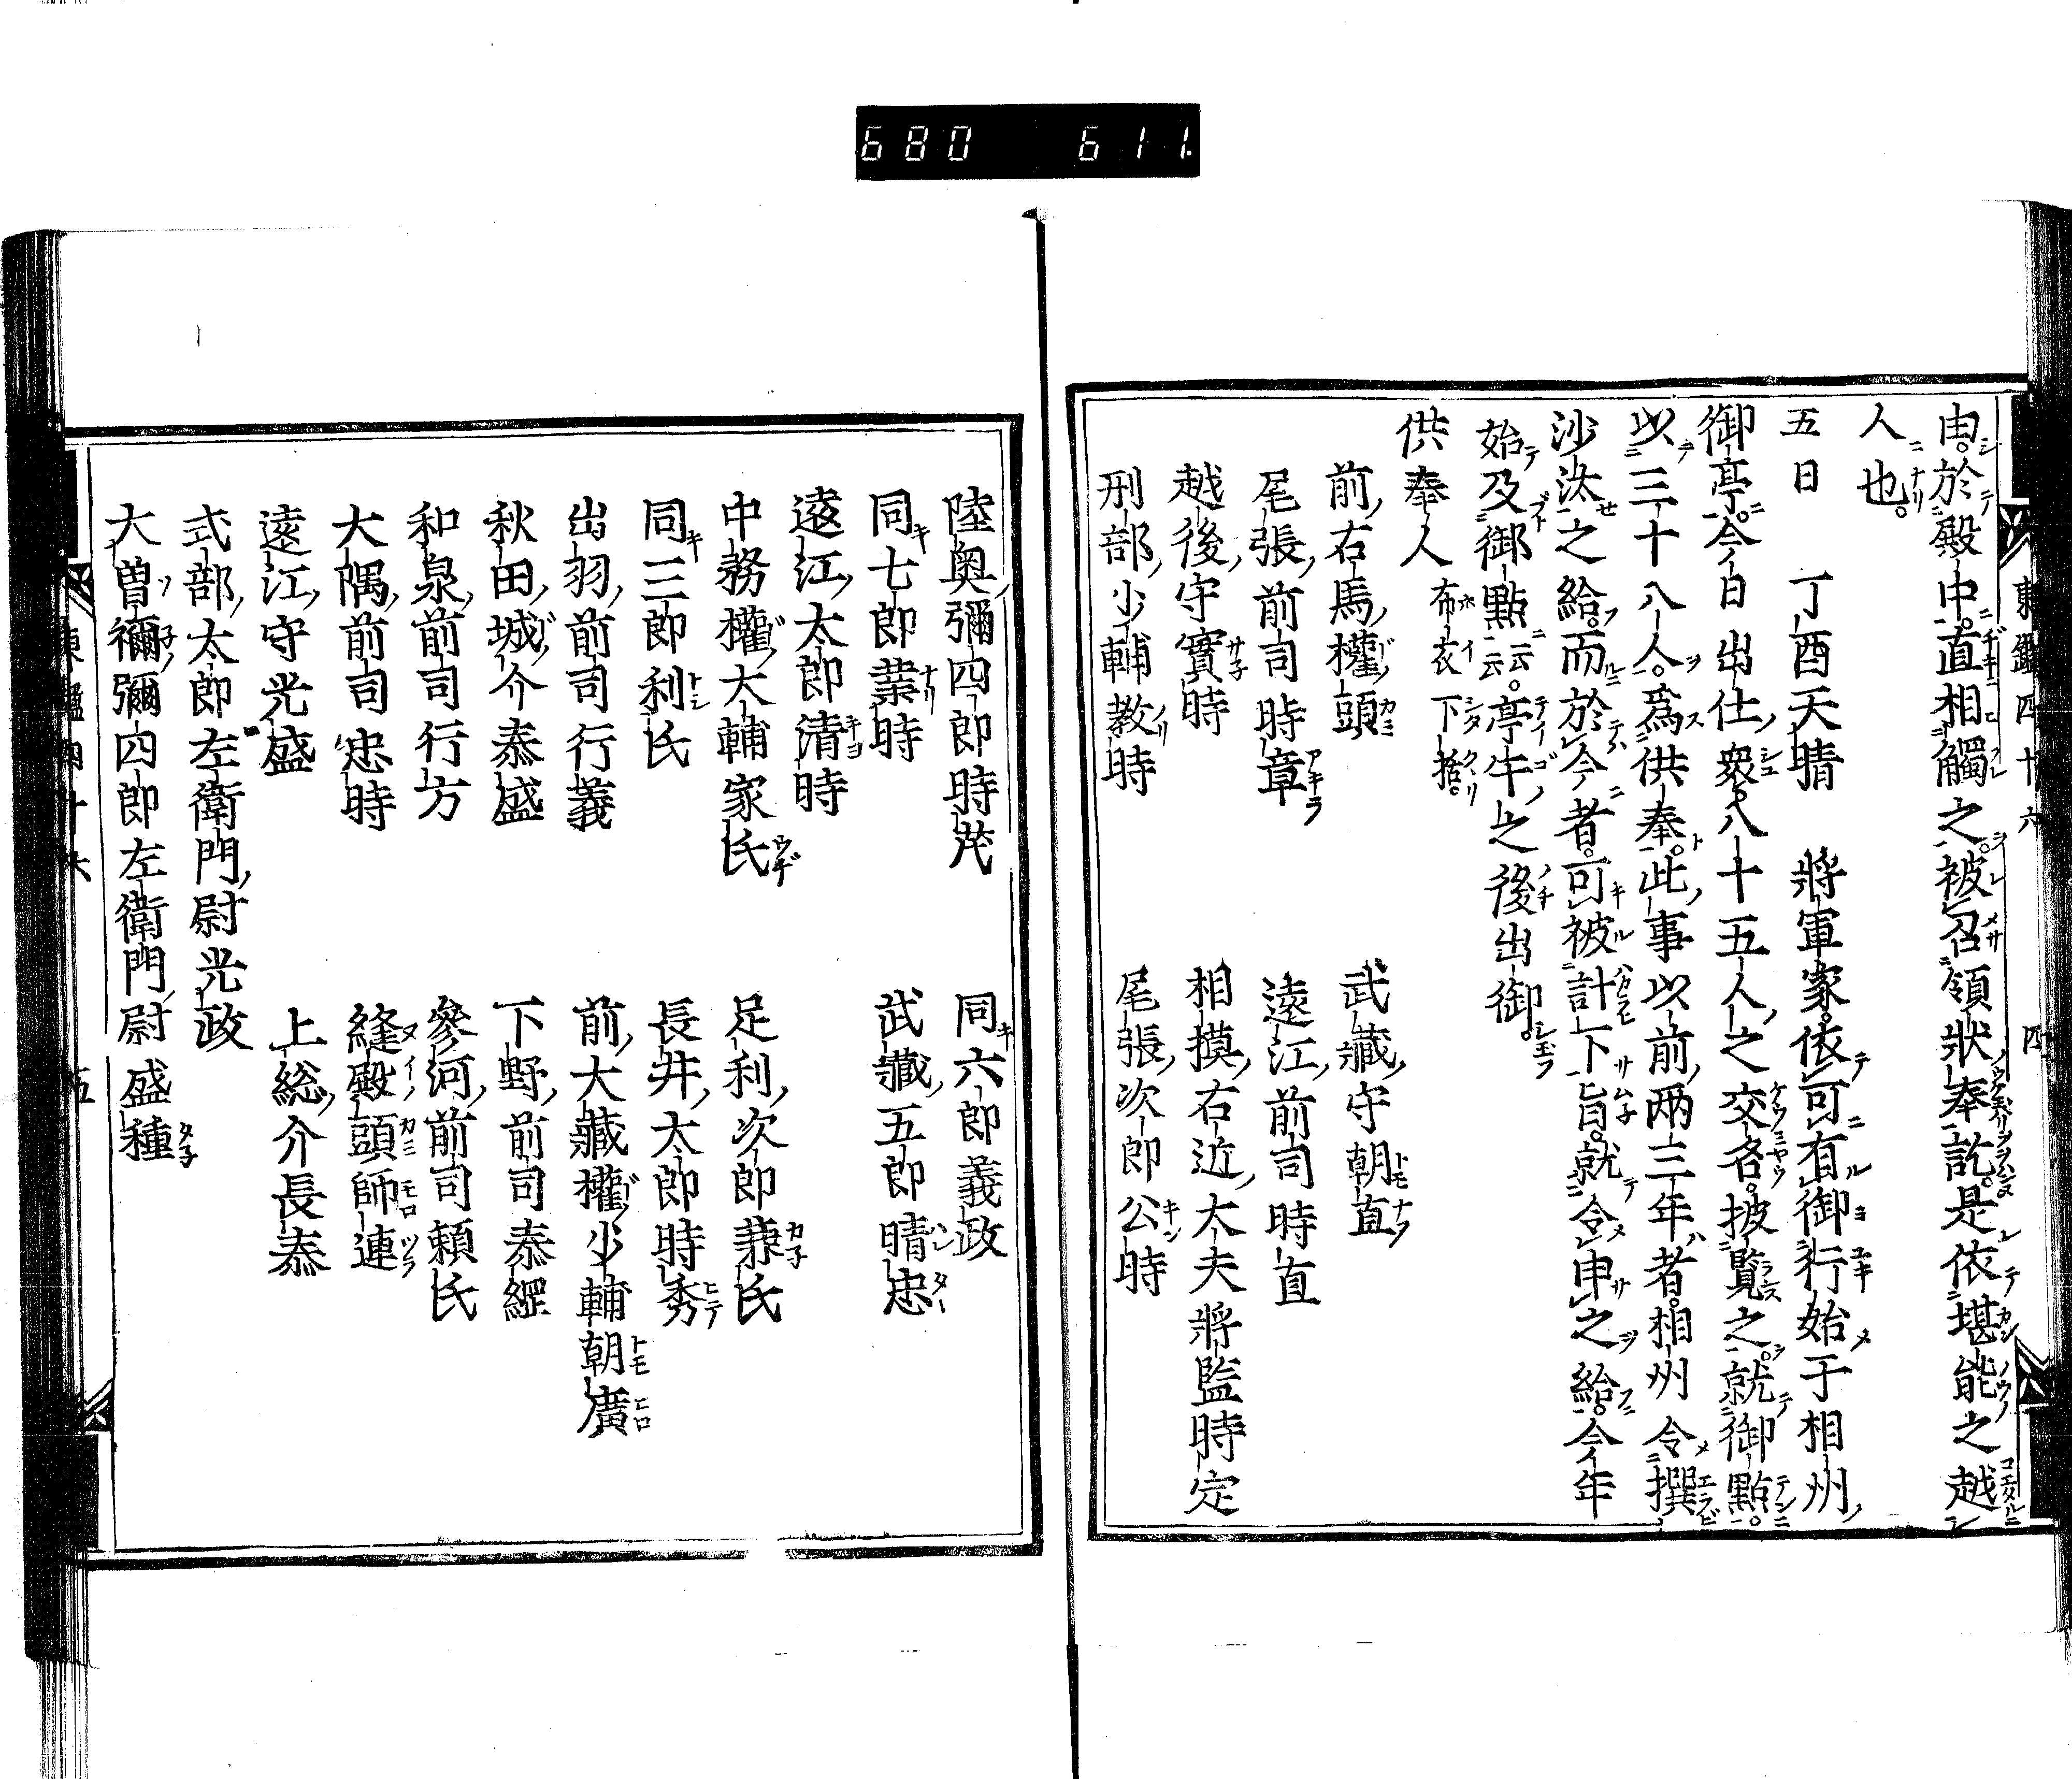 680 611.
東鑑四十六 四
由。於殿中。直相觸之。被召領狀奉訖。是依堪能之越
人也。
五日 丁酉天晴 將軍家。依可有御行始于相州
御亭。今日出仕衆。八十五人之交名。披覽之。就御點。
以三十八人。爲供奉。此事以前兩三年者。相州令撰
沙汰之給。而於今者。可被計下旨。就令申之給。今年
始及御點云云。亭午之後出御。
供奉人 布衣下括。
前右馬權頭 武藏守朝直
尾張前司時章 遠江前司時直
越後守實時 相摸右近大夫將監時定
刑部少輔教時 尾張次郎公時
陸奥彌四郎時茂 同六郎義政
同七郎業時 武藏五郎晴忠
遠江太郎清時
中務權大輔家氏 足利次郎兼氏
同三郎利氏 長井太郎時秀
出羽前司行義 前大藏權少輔朝廣
秋田城介泰盛 下野前司泰經
和泉前司行方 參河前司頼氏
大隅前司忠時 縫殿頭師連
遠江守光盛 上総介長泰
式部太郎左衛門尉光政
大曽禰彌四郎左衛門尉盛種
東鑑四十六 五